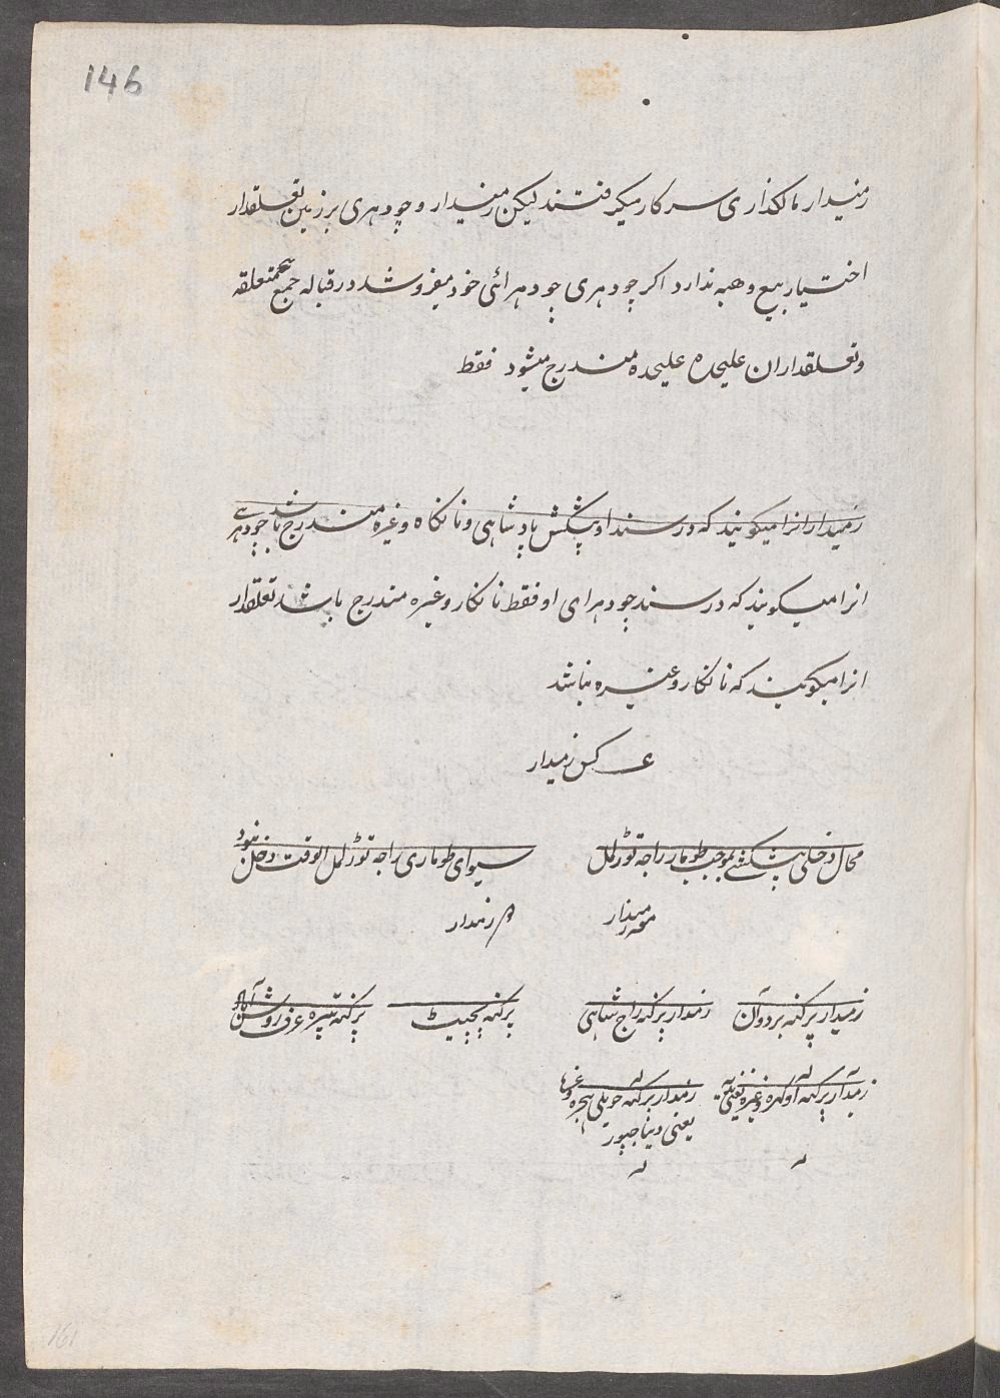 146
زمیندار مالکذاری سرکار میکرفتند لیکن زمیندار و چودهری بر زمین تعلقدار
اختیار بیع و هبه ندارد اکر چودهری چودهرائی خود میفروشد در قباله جمیع متعلقه
و تعلقداران علیحده علیحده مندرج میشود فقط
زمیندار انرا میکویند که در سند او پیشکش پادشاهی و نانکاه وغیره مندرج باشد چودهری
انرا میکویند که در سند چودهرای او فقط نانکار وغیره مندرج باشد تعلقدار
انرا میکویند که نانکار وغیره نباشد
کس زمیدار
محال دخلی پیشکشی بموجب طومار راجه تورمل
سیوای طوماری راجه تورمل الوقت دخل نبود
زمیدار
زمیدار پرکنه بردوان
زمدار پرکنه راج شاهی
پرکنه پچیٹ
پرکنه تپره عرف روشن آباد
زمیدار پرکنه اوکهره وغیره یعنی
زمدار پرکنه حویلی پنجره وغیره
یعنی دیناجپور
161